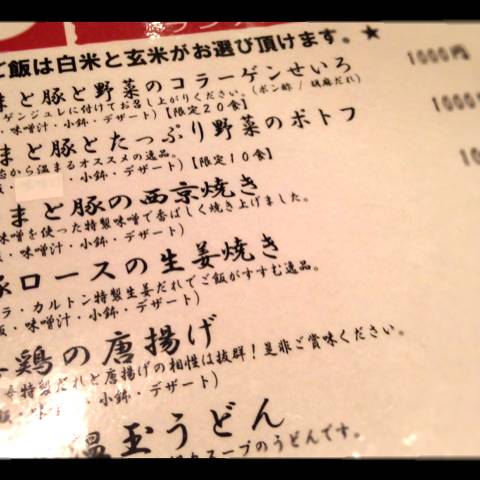 ご飯は白米と玄米がお選び頂けます。★
まと豚と野菜のコラーゲンせいろ 1000円
ゲンジュレに付けてお召し上がりください。(ポン酢 / 胡麻だれ)
・味噌汁・小鉢・デザート)【限定20食】
まと豚とたっぷり野菜のポトフ 1000
から温まるオススメの逸品。
・小鉢・デザート)【限定10食】
まと豚の西京焼き 10
味噌を使った特製味噌で香ばしく焼き上げました。
飯・味噌汁・小鉢・デザート)
豚ロースの生姜焼き
ラ・カルトン特製生姜だれでご飯がすすむ逸品。
飯・味噌汁・小鉢・デザート)
鶏の唐揚げ
特製だれと唐揚げの相性は抜群!是非ご賞味ください。
飯・味噌汁・小鉢・デザート)
温玉うどん
スープのうどんです。